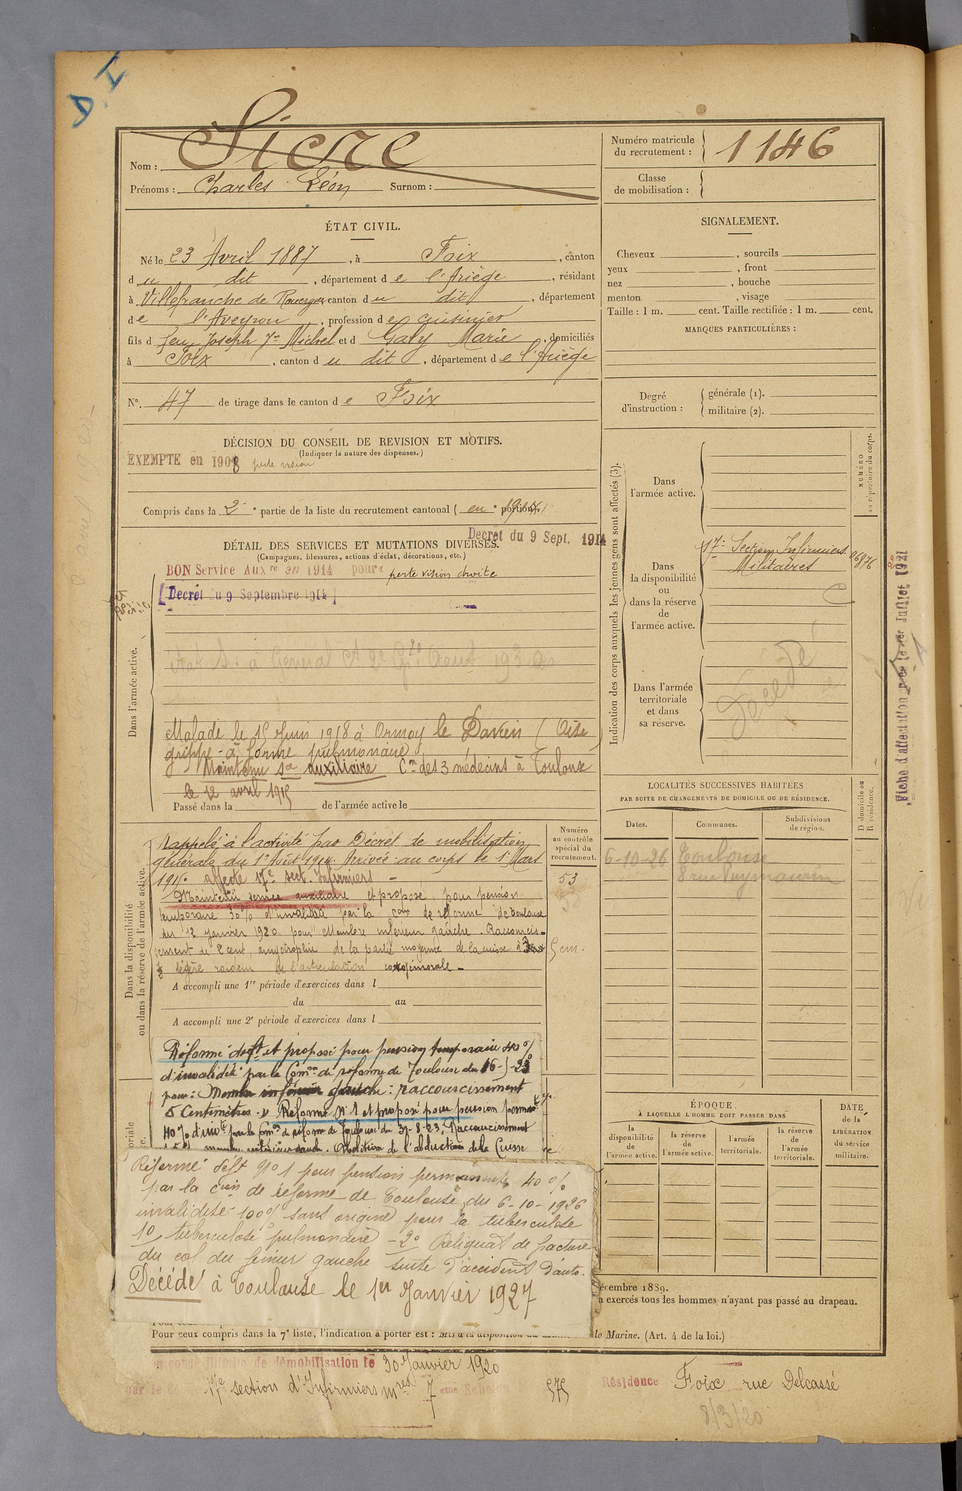 D. I
Nom : Sicre
Prénoms : Charles Léon Surnom :
Numéro matricule
du recrutement : 1146
Classe
de mobilisation :
ÉTAT CIVIL.
Né le 23 Avril 1887, à Foix, canton
du dit, département de l'Ariège, résidant
à Villefranche de Rouergue canton du dit, département
de l'Aveyron, profession de Cuisinier
fils de feu Joseph Jn Michel et de Galy Marie, domiciliés
à Foix, canton du dit, département de l'Ariège
N°. 47 de tirage dans le canton de Foix
SIGNALEMENT.
Cheveux , sourcils
yeux , front
nez , bouche
menton , visage
Taille : 1 m. cent. Taille rectifiée : 1 m. cent.
MARQUES PARTICULIÈRES :
Degré
d'instruction :
générale (1).
militaire (2).
DÉCISION DU CONSEIL DE REVISION ET MOTIFS.
(Indiquer la nature des dispenses.)
EXEMPTE en 1908 perte vision
Compris dans la 2e partie de la liste du recrutement cantonal ( en 1914
Decret du 9 Sept. 1914
DÉTAIL DES SERVICES ET MUTATIONS DIVERSES.
(Campagnes, blessures, actions d'éclat, décorations, etc.)
BON Service Auxre en 1914 pour perte vision droite
[Decrét du 9 Septembre 1914]
Dans l'armée active.
Malade le 15 Juin 1918 à Ormoy le Davien (Oise
grippe à forme pulmonaire
Maintenu sce auxiliaire Con des 3 médecins à Toulouse
le 12 avril 1915
Passé dans la de l'armée active le
Dans la disponibilité
ou dans la réserve de l'armée active.
Rappelé à l'activité par Décret de mobilisation
générale du 1er Août 1914. Arrivé au corps le 1er Mars
affecté 17e sect. Infirmiers
Maintenu service auxiliaire et proposé pour pension
temporaire 30% d'invalidité par la con de réforme de Toulouse
du 12 Janvier 1920 pour Membre inférieur gauche. Raccourcis-
cement de cent amyotrophie de la partie moyenne de la cuisse 5 cm.
légère raideur de l'articulation coxofémorale -
A accompli une 1re période d'exercices dans l
du au
A accompli une 2e période d'exercices dans l
Réformé deft et proposé pour pension temporaire 40%
d'invalidité par la Comon de réforme de Toulouse du
pour : Membre inférieur gauche : raccourcissement
5 Centimètres. Reformé N° 1 et proposé pour pension permte
40% d'invté par la Comon de réforme de Toulouse du 31-8-23. Raccourcissement
Abolition de l'abduction de la Cuisse
Réformé déft n°1 pour pension permanente 40%
par la con de réforme de Toulouse du 6-10-1926
invalidité 100% sans origine pour la tuberculose
1° tuberculose pulmonaire - 2° Reliquat de fracture
du col du fémur gauche suite d'accident d'auto.
Décédé à Toulouse le 1er Janvier 1927
Numéro
au contrôle
spécial du
recrutement.
53
Indication des corps auxquels les jeunes gens sont affectés (3).
Dans
l'armée active.
Dans
la disponibilité
ou
dans la réserve
de
l'armée active.
17e Section Infirmiers
Militaires
Dans l'armée
territoriale
et dans
sa réserve.
Décédé
NUMÉRO
au répertoire du corps.
Fiche d'affectation 1er Juillet 1921
LOCALITÉS SUCCESSIVES HABITÉES
PAR SUITE DE CHANGEMENTS DE DOMICILE OU DE RÉSIDENCE.
Dates.
Communes.
Subdivisions
de région.
D domicile ou
R résidence.
6-10-26 Toulouse
8 rue Peymaurin
ÉPOQUE
À LAQUELLE L'HOMME DOIT PASSER DANS
la
disponibilité
de
l'armée active.
la réserve
de
l'armée active.
l'armée
territoriale.
la réserve
de
l'armée
territoriale.
DATE
de la
LIBÉRATION
du service
militaire.
écembre 1889.
exercés tous les hommes n'ayant pas passé au drapeau.
Pour ceux compris dans la 7e liste, l'indication à porter est : Mis à la disposition de la Marine. (Art. 4 de la loi.)
de démobilisation le 30 Janvier 1920
17e section d'Infirmiers Mres 7 eme Echelon 575
Résidence Foix rue Delcassé
8/3/20